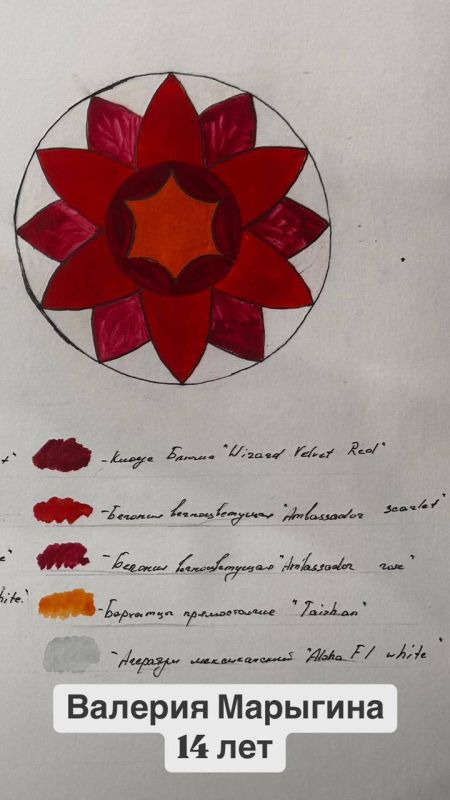 - Колеус Блюма "Wizard Velvet Red"
- Бегония вечноцветущая "Ambassador scarlet"
- Бегония вечноцветущая "Ambassador rose"
hite."
- Бархатцы прямостоячие "Taishan"
- Агератум мексиканский "Aloha F1 white"
Валерия Марыгина
14 лет